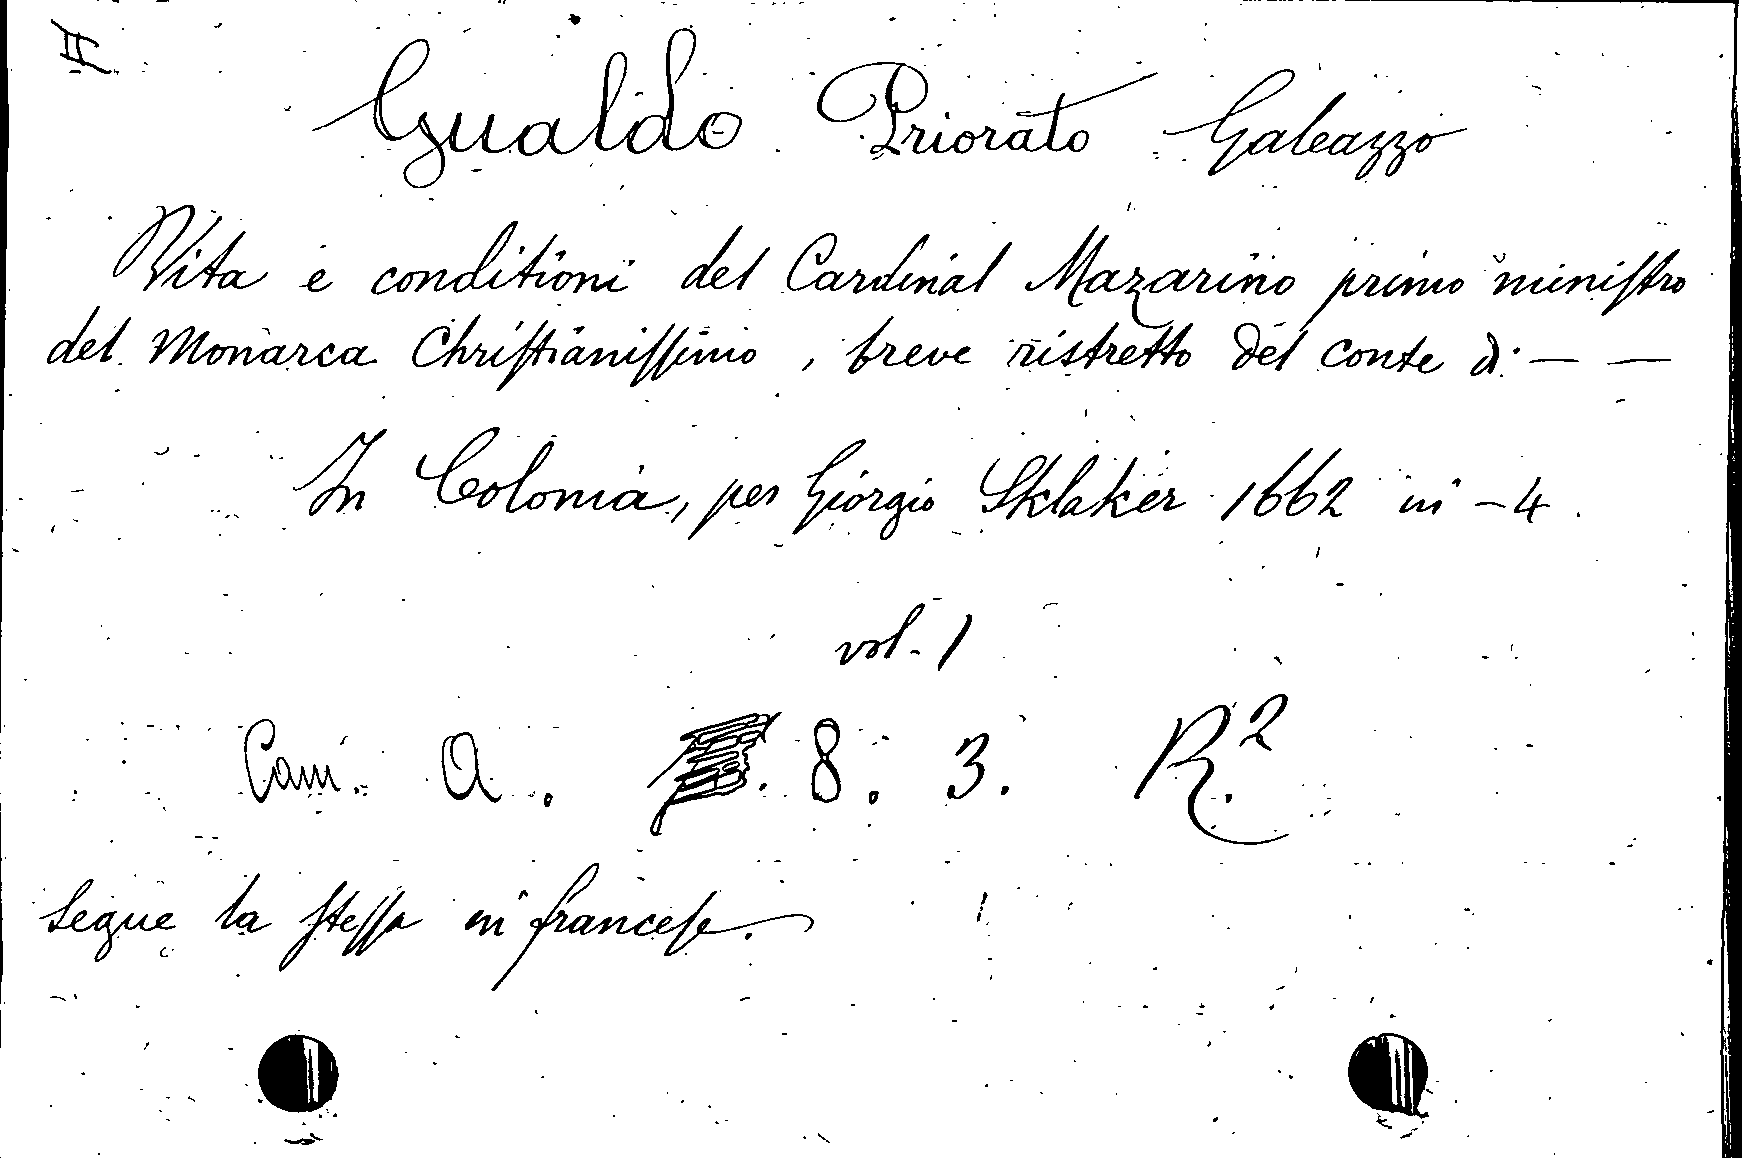 II
Gualdo Priorato Galeazzo
Vita e conditioni del Cardinal Mazarino primo ministro
del Monarca Christianissimo, breve ristretto del conte di — —
In Colonia, per Giorgio Sklaker 1662 in-4.
vol. 1
Cam. A. 8. 3. R.2
Segue la stessa in francese.